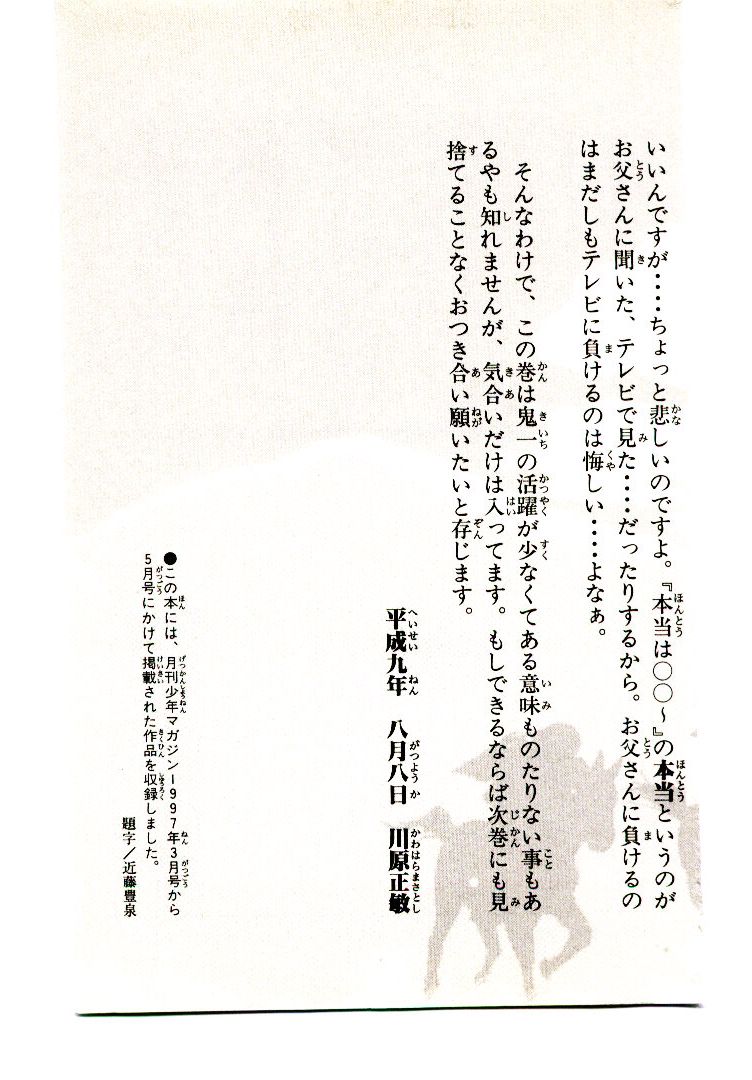 いいんですが‥‥ちょっと悲しいのですよ。『本当は○○～』の本当というのが
お父さんに聞いた、テレビで見た‥‥だったりするから。お父さんに負けるの
はまだしもテレビに負けるのは悔しい‥‥よなぁ。
そんなわけで、この巻は鬼一の活躍が少なくてある意味ものたりない事もあ
るやも知れませんが、気合いだけは入ってます。もしできるならば次巻にも見
捨てることなくおつき合い願いたいと存じます。
平成九年　八月八日　川原正敏
●この本には、月刊少年マガジン1997年3月号から
5月号にかけて掲載された作品を収録しました。
題字／近藤豊泉